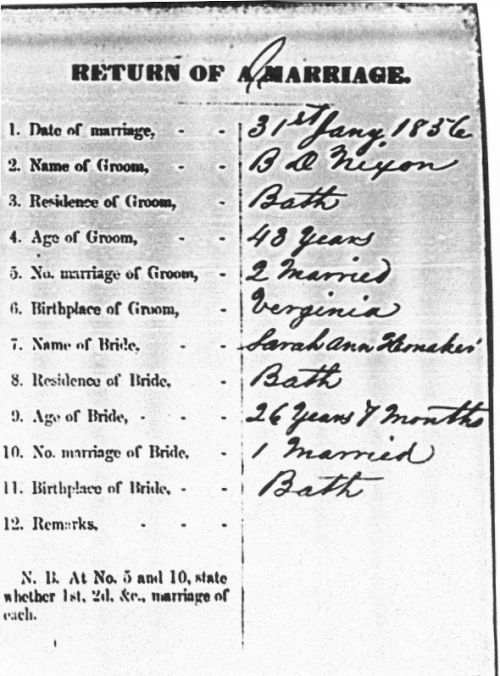 RETURN OF A MARRIAGE.
1. Date of marriage, - - 31st Jany 1856
2. Name of Groom, - - B D Nixon
3. Residence of Groom, - Bath
4. Age of Groom, - - 43 Years
5. No. marriage of Groom, - 2 Married
6. Birthplace of Groom, - Verginia
7. Name of Bride, - - Sarah Ann Honaker
8. Residence of Bride, - Bath
9. Age of Bride, - - - 26 Years 7 Months
10. No. marriage of Bride, - 1 Married
11. Birthplace of Bride, - Bath
12. Remarks, - - -
N. B. At No. 5 and 10, state
whether 1st, 2d, &c., marriage of
each.